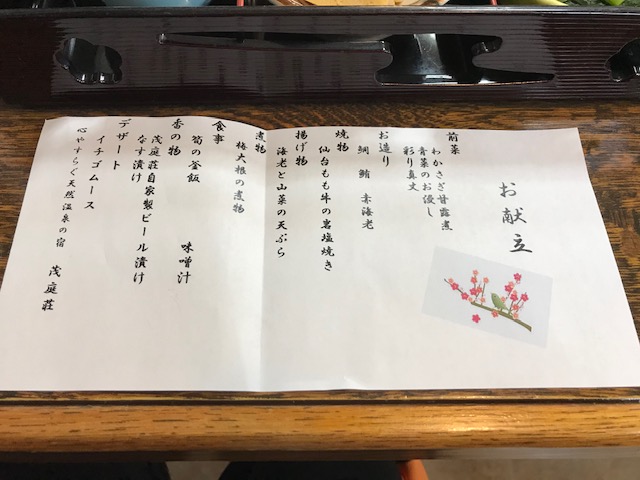 お献立
前菜
わかさぎ甘露煮
青菜のお浸し
彩り真丈
お造り
鯛 鮪 赤海老
焼物
仙台もも牛の岩塩焼き
揚げ物
海老と山菜の天ぷら
煮物
梅大根の煮物
食事
筍の釜飯 味噌汁
香の物
茂庭荘自家製ビール漬け
なす漬け
デザート
イチゴムース
心やすらぐ天然温泉の宿 茂庭荘